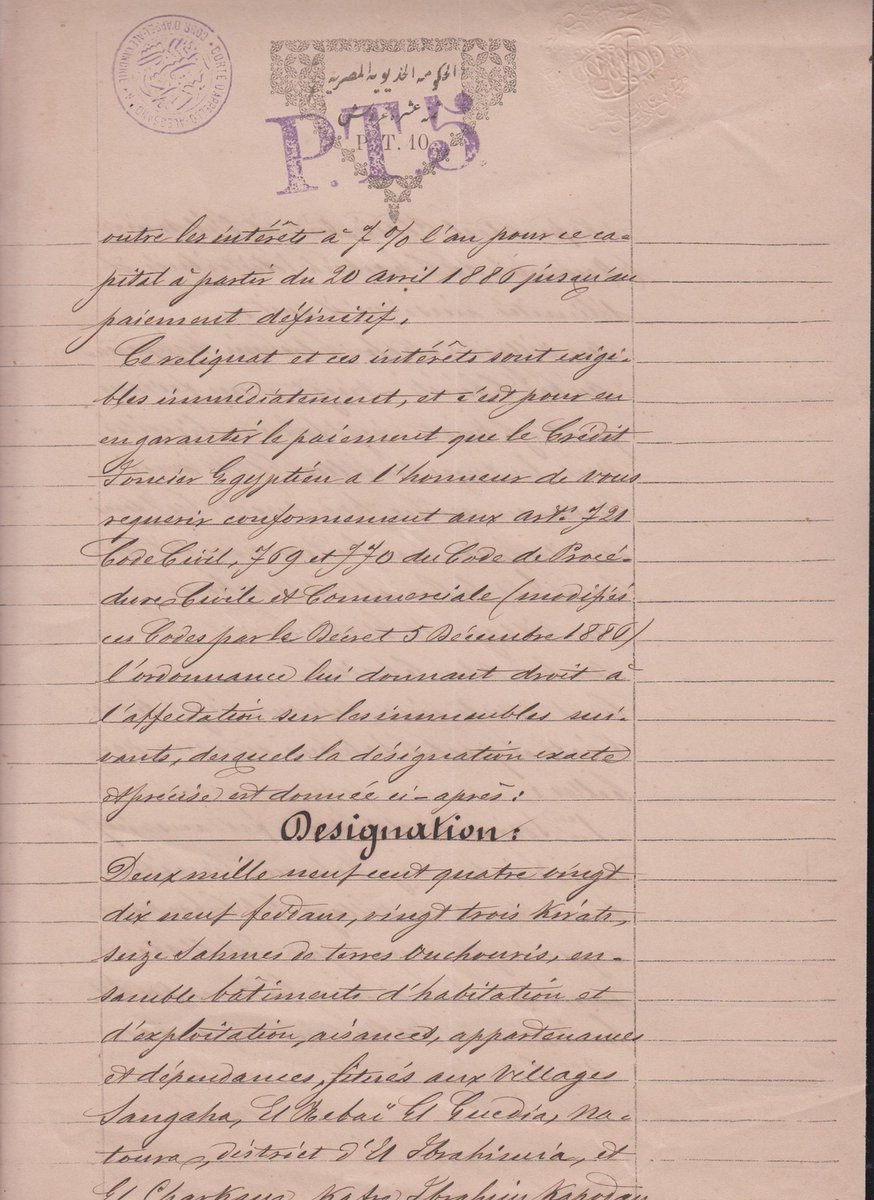 CORTE D'APPELLO ALESSANDRIA
COUR D'APPEL ALEXANDRIE
الحكومة الخديوية المصرية
عشرة غروش
P.T. 10
P.T.5.
outre les intérêts à 7 % l'an pour ce ca-
pital à partir du 20 avril 1886 jusqu'au
paiement définitif.
Ce reliquat et ces intérêts sont exigi-
bles immédiatement, et c'est pour en
en garantir le paiement que le Crédit
Foncier Egyptien a l'honneur de vous
requerir conformement aux arts. 721
Code Civil, 769 et 770 du Code de Procé-
dure Civile et Commerciale (modifiés
ces Codes par le Décret 5 Décembre 1886)
l'ordonnance lui donnant droit à
l'affectation sur les immeubles sui-
vants, desquels la désignation exacte
et précise est donnée ci-après:
Designation:
Deux mille neuf cent quatre vingt
dix neuf feddans, vingt trois Kirats,
seize Sahmes de terres Ouchouris, en-
semble bâtiments d'habitation et
d'exploitation, aisances, appartenances
et dépendances, situés aux Villages
Sangaha, El Rebaï El Guedia, Na-
toura, district d'El Ibrahimia, et
El Charkaua Kafr Ibrahim